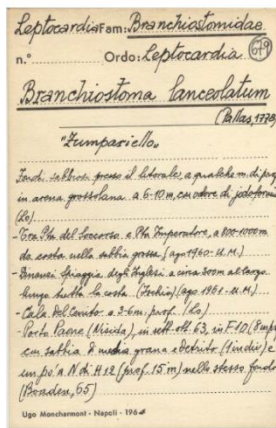 Leptocardia Fam: Branchiostomidae
n.° Ordo: Leptocardia 679
Branchiostoma lanceolatum
(Pallas, 1778)
"Zumpariello"
Fondi sabbiosi presso il litorale, a qualche m. di prof.
in arena grossolana a 6-10 m, con odore di jodoformio
(Lo)
- Tra Pta del Soccorso e Pta Imperatore, a 800-1000 m
da costa nella sabbia grossa (ago 1960 - U.M.)
- Dinanzi Spiaggia degli Inglesi a circa 300 m al largo.
lungo tutta la costa (Ischia) (ago 1961 - U.M.)
- Cala del Cenito a 3-6 m. prof. (Lo)
- Porto Paone (Nisida), in sett-ott. 63, in F10 (8 m prof)
con sabbia di media grana e detrito (1 indiv) e
un po' a N di H12 (prof. 15 m) nello stesso fondo
(Boaden, 65)
Ugo Moncharmont - Napoli - 196